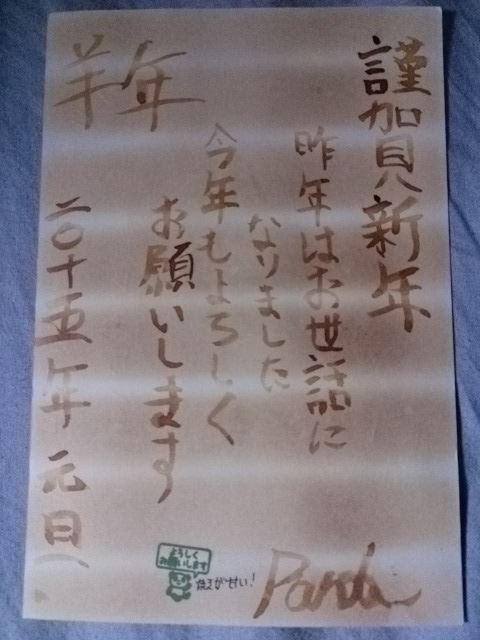 謹賀新年
昨年はお世話に
なりました
今年もよろしく
お願いします
羊年
二〇十五年 元日
よろしく
お願いします
焼きが甘い!
Panda